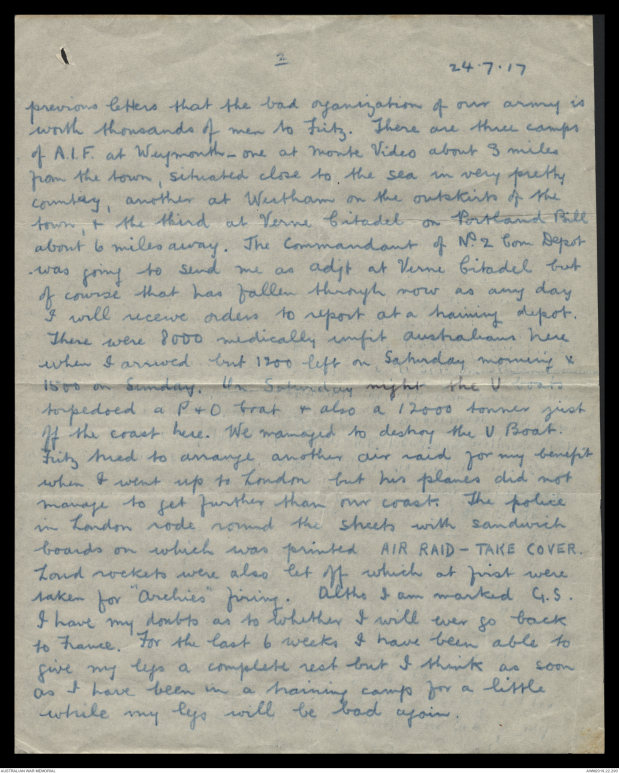 2
24.7.17
previous letters that the bad organization of our army is
worth thousands of men to Fritz. There are three camps
of A.I.F. at Weymouth - one at Monte Video about 3 miles
from the town, situated close to the sea in very pretty
country, another at Westham on the outskirts of the
town, & the third at Verne Citadel on Portland Bill
about 6 miles away. The Commandant of No. 2 Com Depot
was going to send me as adjt at Verne Citadel but
of course that has fallen through now as any day
I will receive orders to report at a training depot.
There were 8000 medically unfit Australians here
when I arrived but 1200 left on Saturday morning &
1500 on Sunday. On Saturday night the U boats
torpedoed a P & O boat & also a 12000 tonner just
off the coast here. We managed to destroy the U Boat.
Fritz tried to arrange another air raid for my benefit
when I went up to London but his planes did not
manage to get further than our coast. The police
in London rode round the streets with sandwich
boards on which was printed AIR RAID - TAKE COVER.
Loud rockets were also let off which at first were
taken for "Archies" firing. Altho I am marked G.S.
I have my doubts as to whether I will ever go back
to France. For the last 6 weeks I have been able to
give my legs a complete rest but I think as soon
as I have been in a training camp for a little
while my legs will be bad again.
AUSTRALIAN WAR MEMORIAL